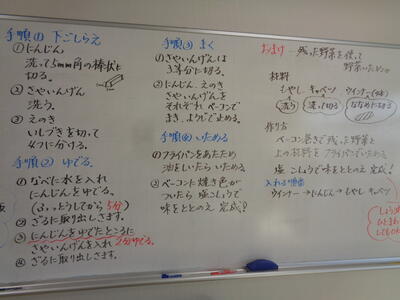 手順(1) 下ごしらえ
① にんじん
洗って5mm角の棒状に
切る。
② さやいんげん
洗う。
③ えのき
いしづきを切って
4つに分ける。
手順(2) ゆでる。
① なべに水を入れ
にんじんをゆでる。
(ふっとうしてから5分)
② ざるに取り出しさます。
③ にんじんをゆでたところに
さやいんげんを入れ 2分ゆでる。
④ ざるに取り出しさます。
手順(3) まく
① さやいんげんは
3等分に切る。
② にんじん、えのき
さやいんげんを
それぞれベーコンで
まき、ようじで止める。
手順(4) いためる
① フライパンをあたため
油をしいたらいためる
② ベーコンに焼き色が
ついたら 塩こしょうで
味をととのえ 完成!
おまけ 残った野菜を使って
野菜いため
材料
もやし キャベツ ウインナー
洗う 洗って切る ななめに切る
作り方
ベーコン巻きで残った野菜と
上の材料をフライパンでいためる
塩こしょうで味をととのえ 完成!
入れる順番
ウインナー→にんじん→もやし キャベツ